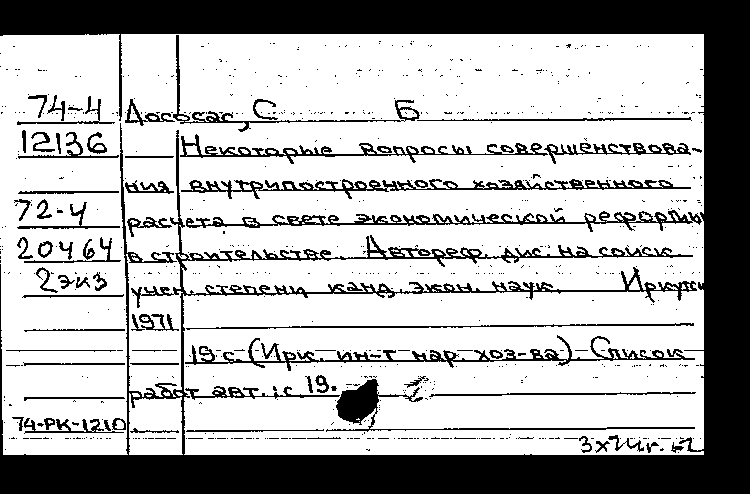 74-4 Дососас, С Б
12136 Некоторые вопросы совершенствова-
ния внутрипостроечного хозяйственного
72-4 расчета в свете экономической реформы
20464 в строительстве. Автореф. дис. на соиск.
2экз учен. степени канд. экон. наук. Иркутск
1971
19 с. (Ирк. ин-т нар. хоз-ва). Список
работ авт.: с 19.
74-РК-1210